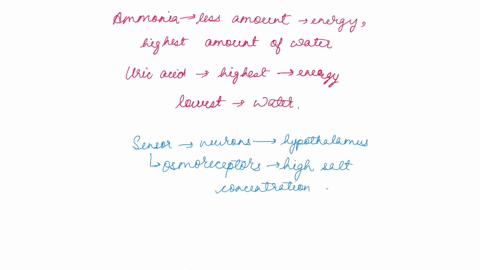 Ammonia → less amount → energy,
highest amount of water
Uric acid → highest → energy
lowest → water.
Sensor → neurons → hypothalamus
↳ osmoreceptors → high salt
concentration .